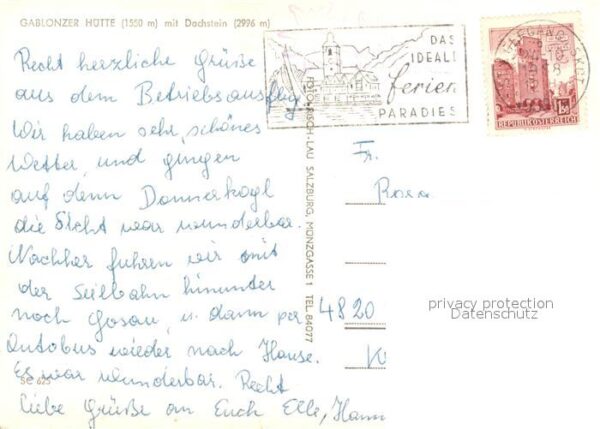 GABLONZER HÜTTE (1550 m) mit Dachstein (2996 m)
Recht herzliche Grüße
aus dem Betriebsausflug
Wir haben sehr schönes
Wetter und gingen
auf denn Donnerkogl
die Sicht war wunderbar.
Nachher fuhren wir mit
der Seilbahn hinunter
nach Gosau, u. dann per
Autobus wieder nach Hause.
Es war wunderbar. Recht
liebe Grüße an Euch Elle, Hann
SC 625
DAS
IDEALE
ferien
PARADIES
REPUBLIK ÖSTERREICH
1.50
LAU SALZBURG, MÜNZGASSE 1 TEL. 84077
Fr.
Rosa
4820
K
privacy protection
Datenschutz